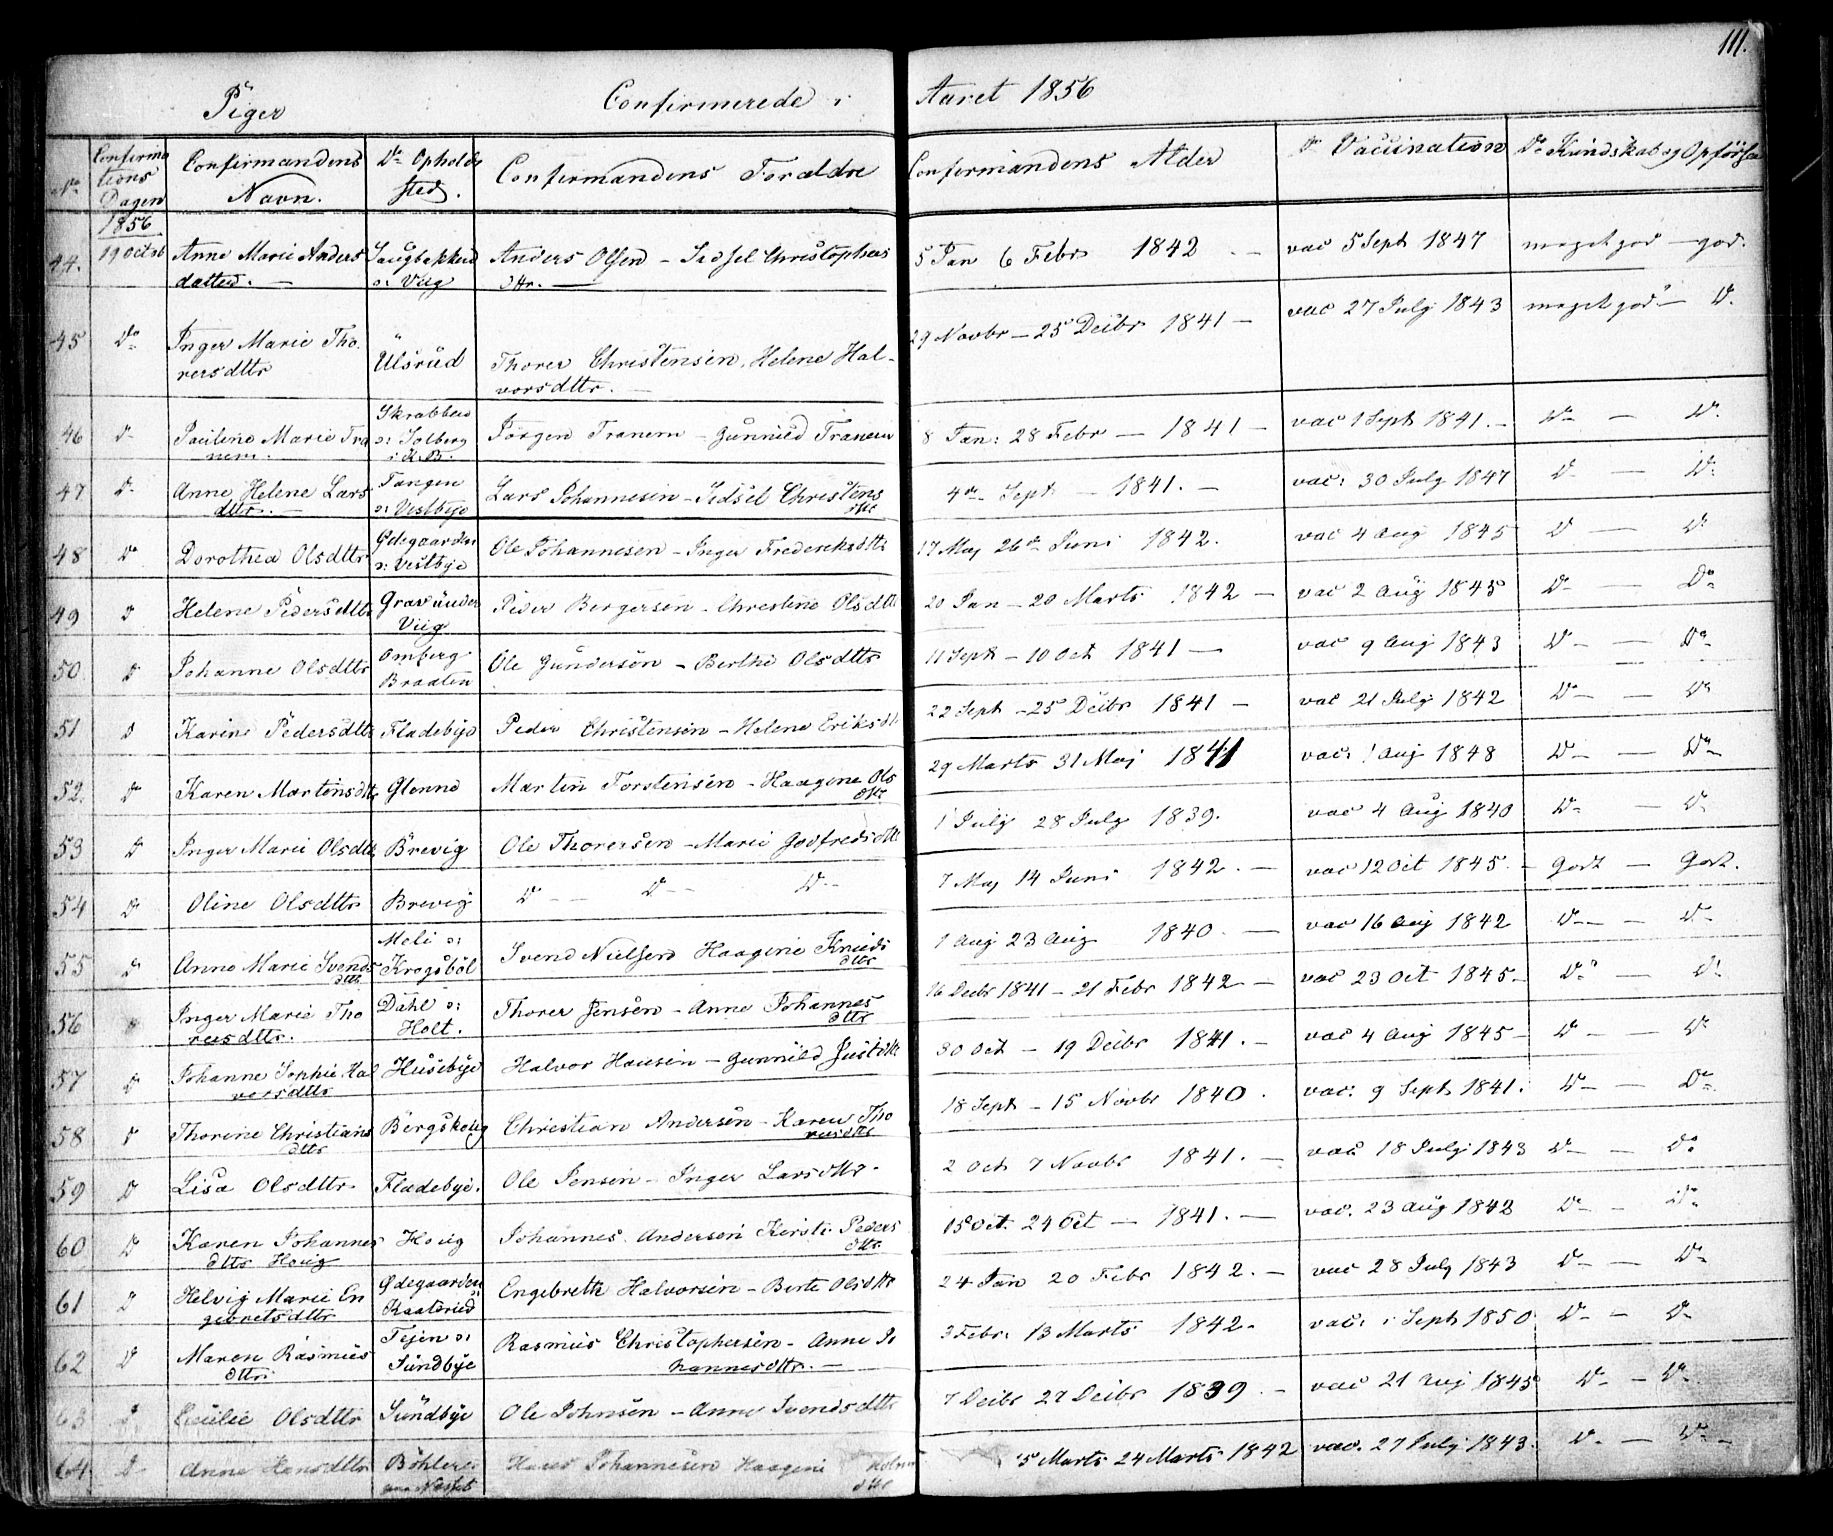 111.
Piger Confirmerede i Aaret 1856
No Confirmations Dagen Confirmandens Navn. Do Opholdssted. Confirmandens Forældre Confirmandens Alder Do Vaccination Do Kundskab og Opførsel
1856
44. 19 Octob Anne Marie Anders Saugbakken Anders Olsen - Sidsel Christophers 5 Jan 6 Febr 1842 - vac 5 Sept 1847 meget god - god.
datter. - o: Viig dttr. -
45 Do Inger Marie Tho Ulsrud Thorer Christensen, Helene Hal- 29 Novbr - 25 Decbr 1841 - vac 27 July 1843 meget god - Do
rersdttr vorsdttr. -
46 Do Pauline Marie Tra Skrabben Jørgen Tranem - Gunnild Tranem 8 Jan: 28 Febr - 1841 - vac 1 Sept 1841. - Do - Do
nem. o: Solberg
i K.B.
47 Do Anne Helene Lars Tangen Lars Johannesen - Sidsel Christens 4de Sept - 1841. - vac: 30 July 1847 Do - Do
dttr. - o: Vestbye dttr
48 Do Dorothea Olsdttr Ødegaarden Ole Johannesen - Inger Frederiksdttr 17 Maj 26de Juni 1842. vac 4 Aug 1845 Do - Do
o: Vestbye
49 Do Helene Pedersdttr Grav under Peder Bergersen - Christine Olsdttr 20 Jan - 20 Marts 1842 - vac 2 Aug 1845 Do - Do
Viig
50 Do Johanne Olsdttr Omberg Ole Gundersen - Berthe Olsdttr 11 Sept - 10 Oct 1841 - vac 9 Aug 1843 Do - Do
Braaten
51 Do Karine Pedersdttr Fladebye Peder Christensen - Helene Eriksdtt 22 Sept - 25 Decbr 1841 - vac 21 July 1842 Do - Do
52. Do Karen Martinsdttr Glenne Martin Torstensen - Haagine Ols 29 Marts 31 Maj 1841 vac: 1 Aug 1848 Do - Do
dttr
53 Do Inger Marie Olsdttr Brevig Ole Thorersen - Marie Godfredsdttr 1 July 28 July 1839. vac 4 Aug 1840 Do - Do
54 Do Oline Olsdttr Brevig Do - Do - Do - 7 Maj 14 Juni 1842. - vac 12 Oct 1845. - Godt - Godt.
55 Do Anne Marie Svends Meli o: Svend Nielsen Haagine Knuds 1 Aug 23 Aug 1840. - vac 16 Aug 1842 Do - Do
dttr Krogsbøl dttr
56 Do Inger Marie Tho Dahl o: Thorer Jensen - Anne Johannes 16 Decbr 1841 - 21 Febr 1842 - vac 23 Oct 1845 - Do - Do
rersdttr. Holt. dttr
57 Do Johanne Sophie Hal Husebye Halvor Hansen - Gunnild 30 Oct - 19 Decbr 1841. - vac 4 Aug 1845 - Do - Do
vorsdttr
58 Do Thorine Christians Bergskoug Christian Andersen - Karen Tho 18 Sept - 15 Novbr 1840. vac: 9 Sept 1841. Do - Do
dttr rersdttr
59 Do Lisa Olsdttr Fladebye. Ole Jensen - Inger Larsdttr. 2 Oct 7 Novbr 1841. - vac 18 July 1843 Do - Do
60 Do Karen Johannes Houg Johannes Andersen Kersti Peders 15 Oct. 24 Oct - 1841. - vac. 23 Aug 1842 Do - Do
dttr Houg dttr
61 Do Helvig Marie En Ødegaarden Engebreth Halvorsen - Berte Olsdttr 24 Jan 20 Febr 1842. - vac 28 July 1843 Do - Do
gebretsdttr o: Kaatsrud
62 Do Maren Rasmus Tejen o: Rasmus Christophersen - Anne Jo 3 Febr: 13 Marts 1842. vac: 1 Sept 1850 Do - Do
dttr Sundbye hannesdttr. -
63 Do Cecilie Olsdttr Sundbye Ole Johnsen - Anne Svendsdttr 7 Decbr 27 Decbr 1839. - vac 21 Aug 1845 Do - Do
64 Do Anne Hansdttr Bøhleren Hans Johannesen Haagine 5 Marts 24 Marts 1842 vac. 27 July 1843. Do - Do -
Næsset dttr